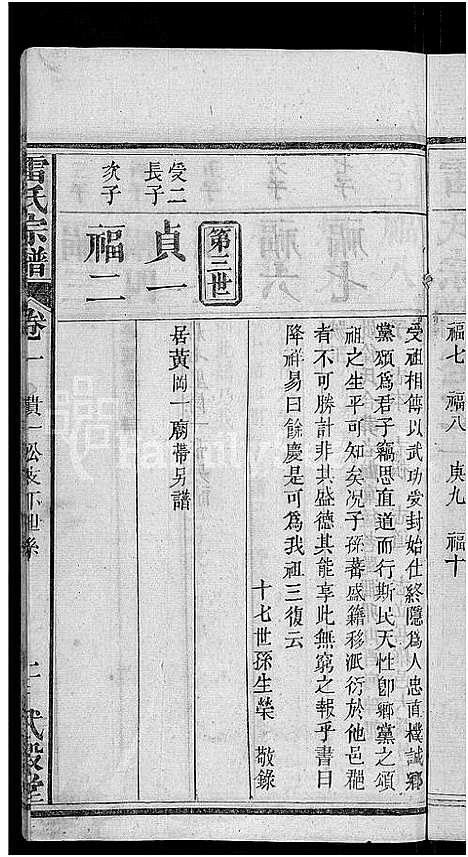 福七 福八 庚九 福十
受祖相傳以武功受封始仕終隱為人忠直樸誠鄉
黨頌為君子竊思直道而行斯民天性卽鄉黨之頌
祖之生平可知矣况子孫蕃盛籍移派衍於他邑
者不可勝計非其盛德其能享此無窮之報乎書曰
降祥易曰餘慶是可為我祖三復云
十七世孫生榮 敬錄
第三世
受二長子
貞一
居黃岡一廟帶另譜
次子
福二
雷氏宗譜
卷一
貴一公支下世系
二
式穀堂